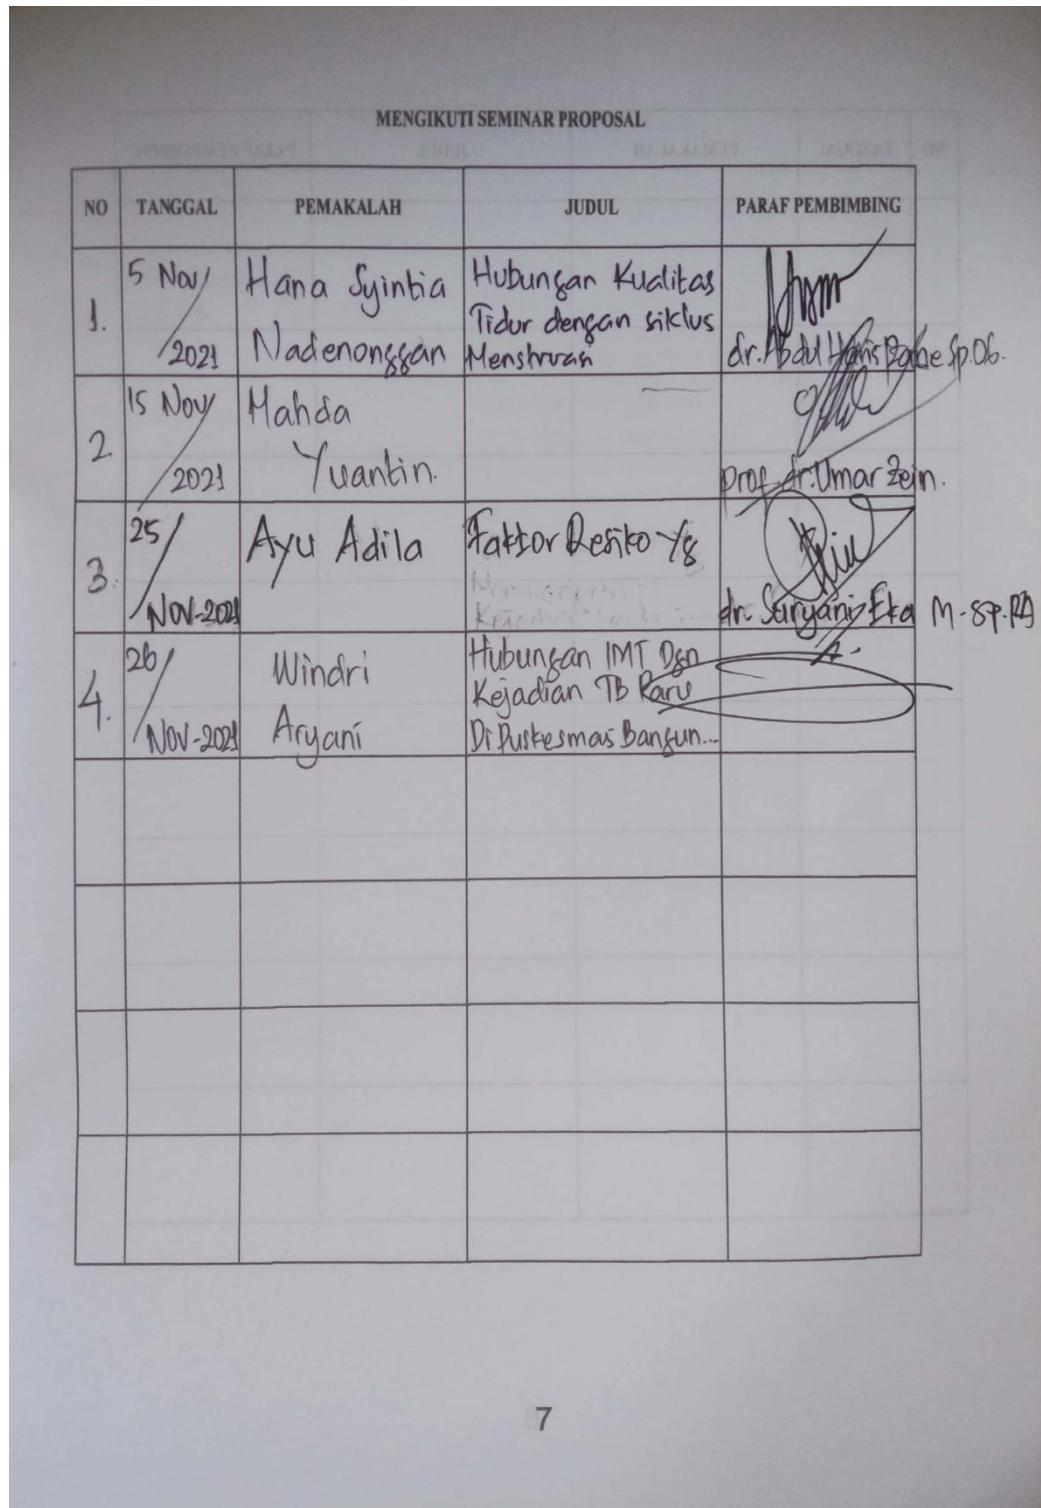 MENGIKUTI SEMINAR PROPOSAL
NO TANGGAL PEMAKALAH JUDUL PARAF PEMBIMBING
1. 5 Nov/2021 Hana Syintia Nadenonggan Hubungan Kualitas
Tidur dengan siklus
Menstruasi
dr. Abdul Haris Sp.OG.
2. 15 Nov/2021 Mahda
Yuantin.
Prof dr. Umar Zein.
3. 25/Nov-2021 Ayu Adila Faktor Resiko Yg
dr. Suryani Eka M-
4. 26/Nov-2021 Windri
Aryani
Hubungan IMT Dgn
Kejadian TB Paru
Di Puskesmas Bangun...
7